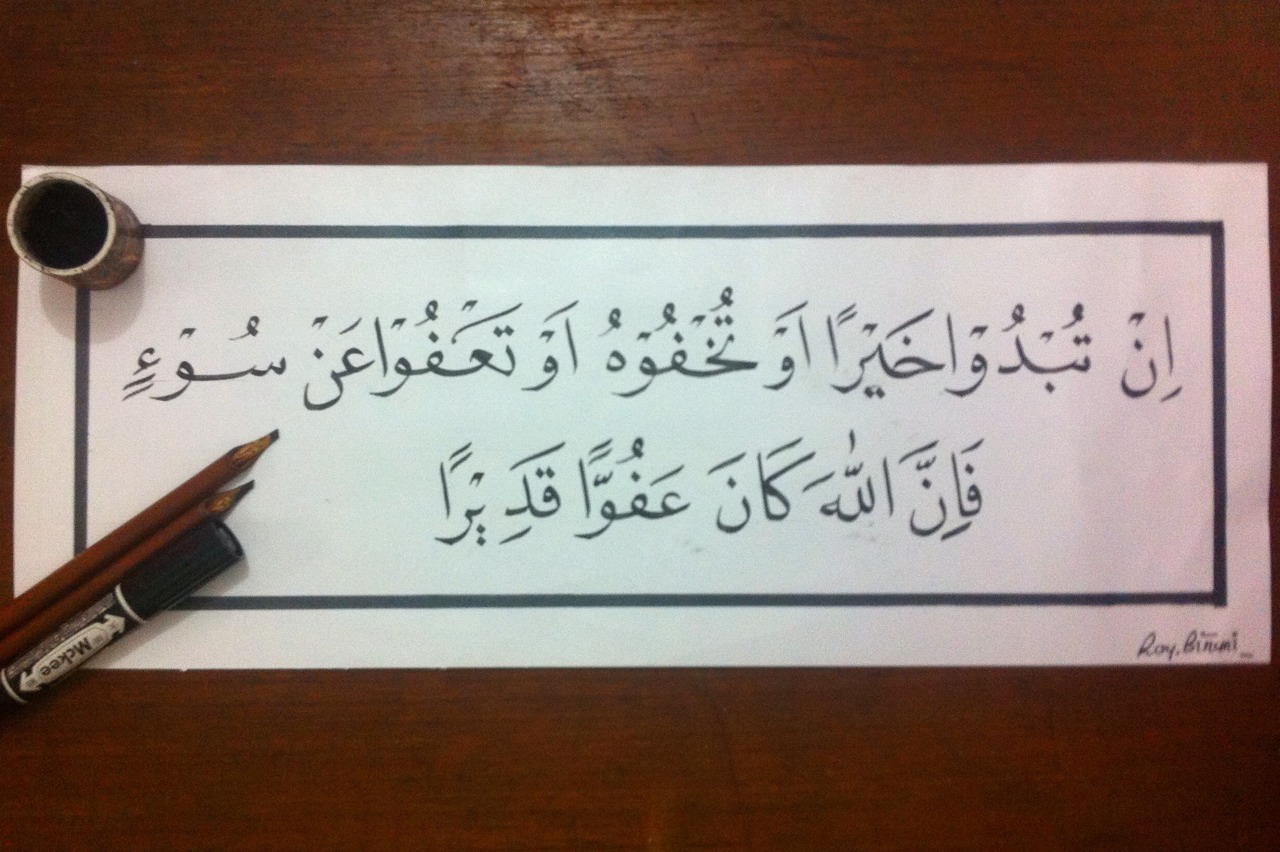 اِنْ تُبْدُوْا خَيْرًا اَوْ تُخْفُوْهُ اَوْ تَعْفُوْا عَنْ سُوْۤءٍ
فَاِنَّ اللّٰهَ كَانَ عَفُوًّا قَدِيْرًا
Mckee
Roy.Binumi